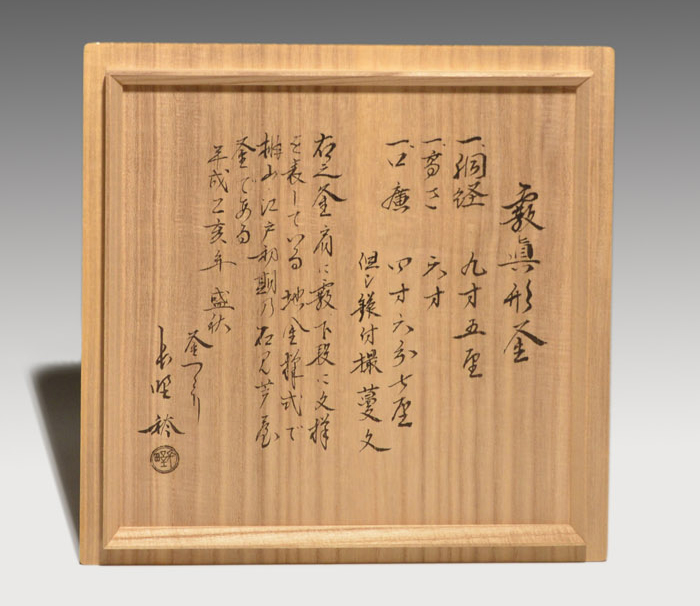 霰眞形釜
一、胴経 九寸五厘
一、高さ 六寸
一、口廉 四寸六分七厘
但シ鐶付撮 蔓文
右之釜肩に霰下段に文様
を表している 地金様式で
江戸初期乃石見芦屋
釜である
平成乙亥年 盛秋
釜つくり
長野